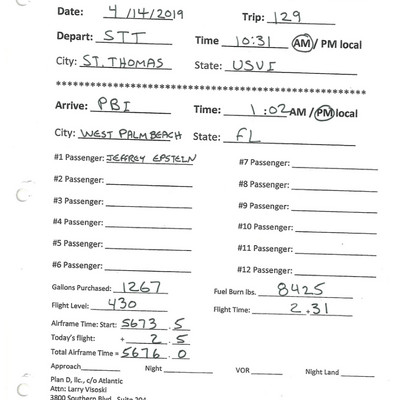 Date: 4/14/2019 Trip: 129
Depart: STT Time 10:31 AM / PM local
City: ST. THOMAS State: USVI
**************************************************
Arrive: PBI Time: 1:02 AM / PM local
City: WEST PALM BEACH State: FL
#1 Passenger: JEFFREY EPSTEIN #7 Passenger:
#2 Passenger: #8 Passenger:
#3 Passenger: #9 Passenger:
#4 Passenger: #10 Passenger:
#5 Passenger: #11 Passenger:
#6 Passenger: #12 Passenger:
Gallons Purchased: 1267 Fuel Burn lbs. 8425
Flight Level: 430 Flight Time: 2.31
Airframe Time: Start: 5673.5
Today's flight: + 2.5
Total Airframe Time = 5676.0
Approach Night VOR Night Land
Plan D, llc., c/o Atlantic
Attn: Larry Visoski
3800 Southern Blvd., Suite 204